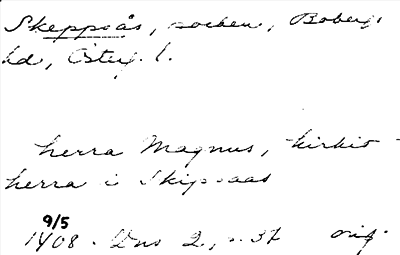 Skeppsås, socken, Bobergs
hd, Österg. l.
herra Magnus, kirkio-
herra i Skipsaas
9/5
1408. Dns 2, s. 37 orig.